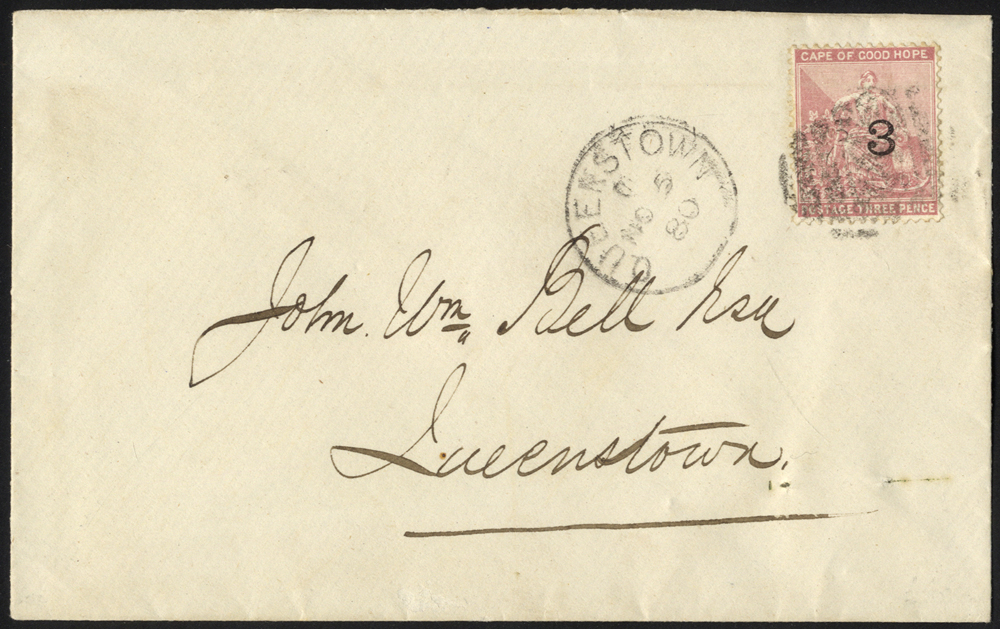 CAPE OF GOOD HOPE
3
POSTAGE THREE PENCE
QUEENSTOWN
NO 5
80
John. Wm. Bell Esq
Queenstown.